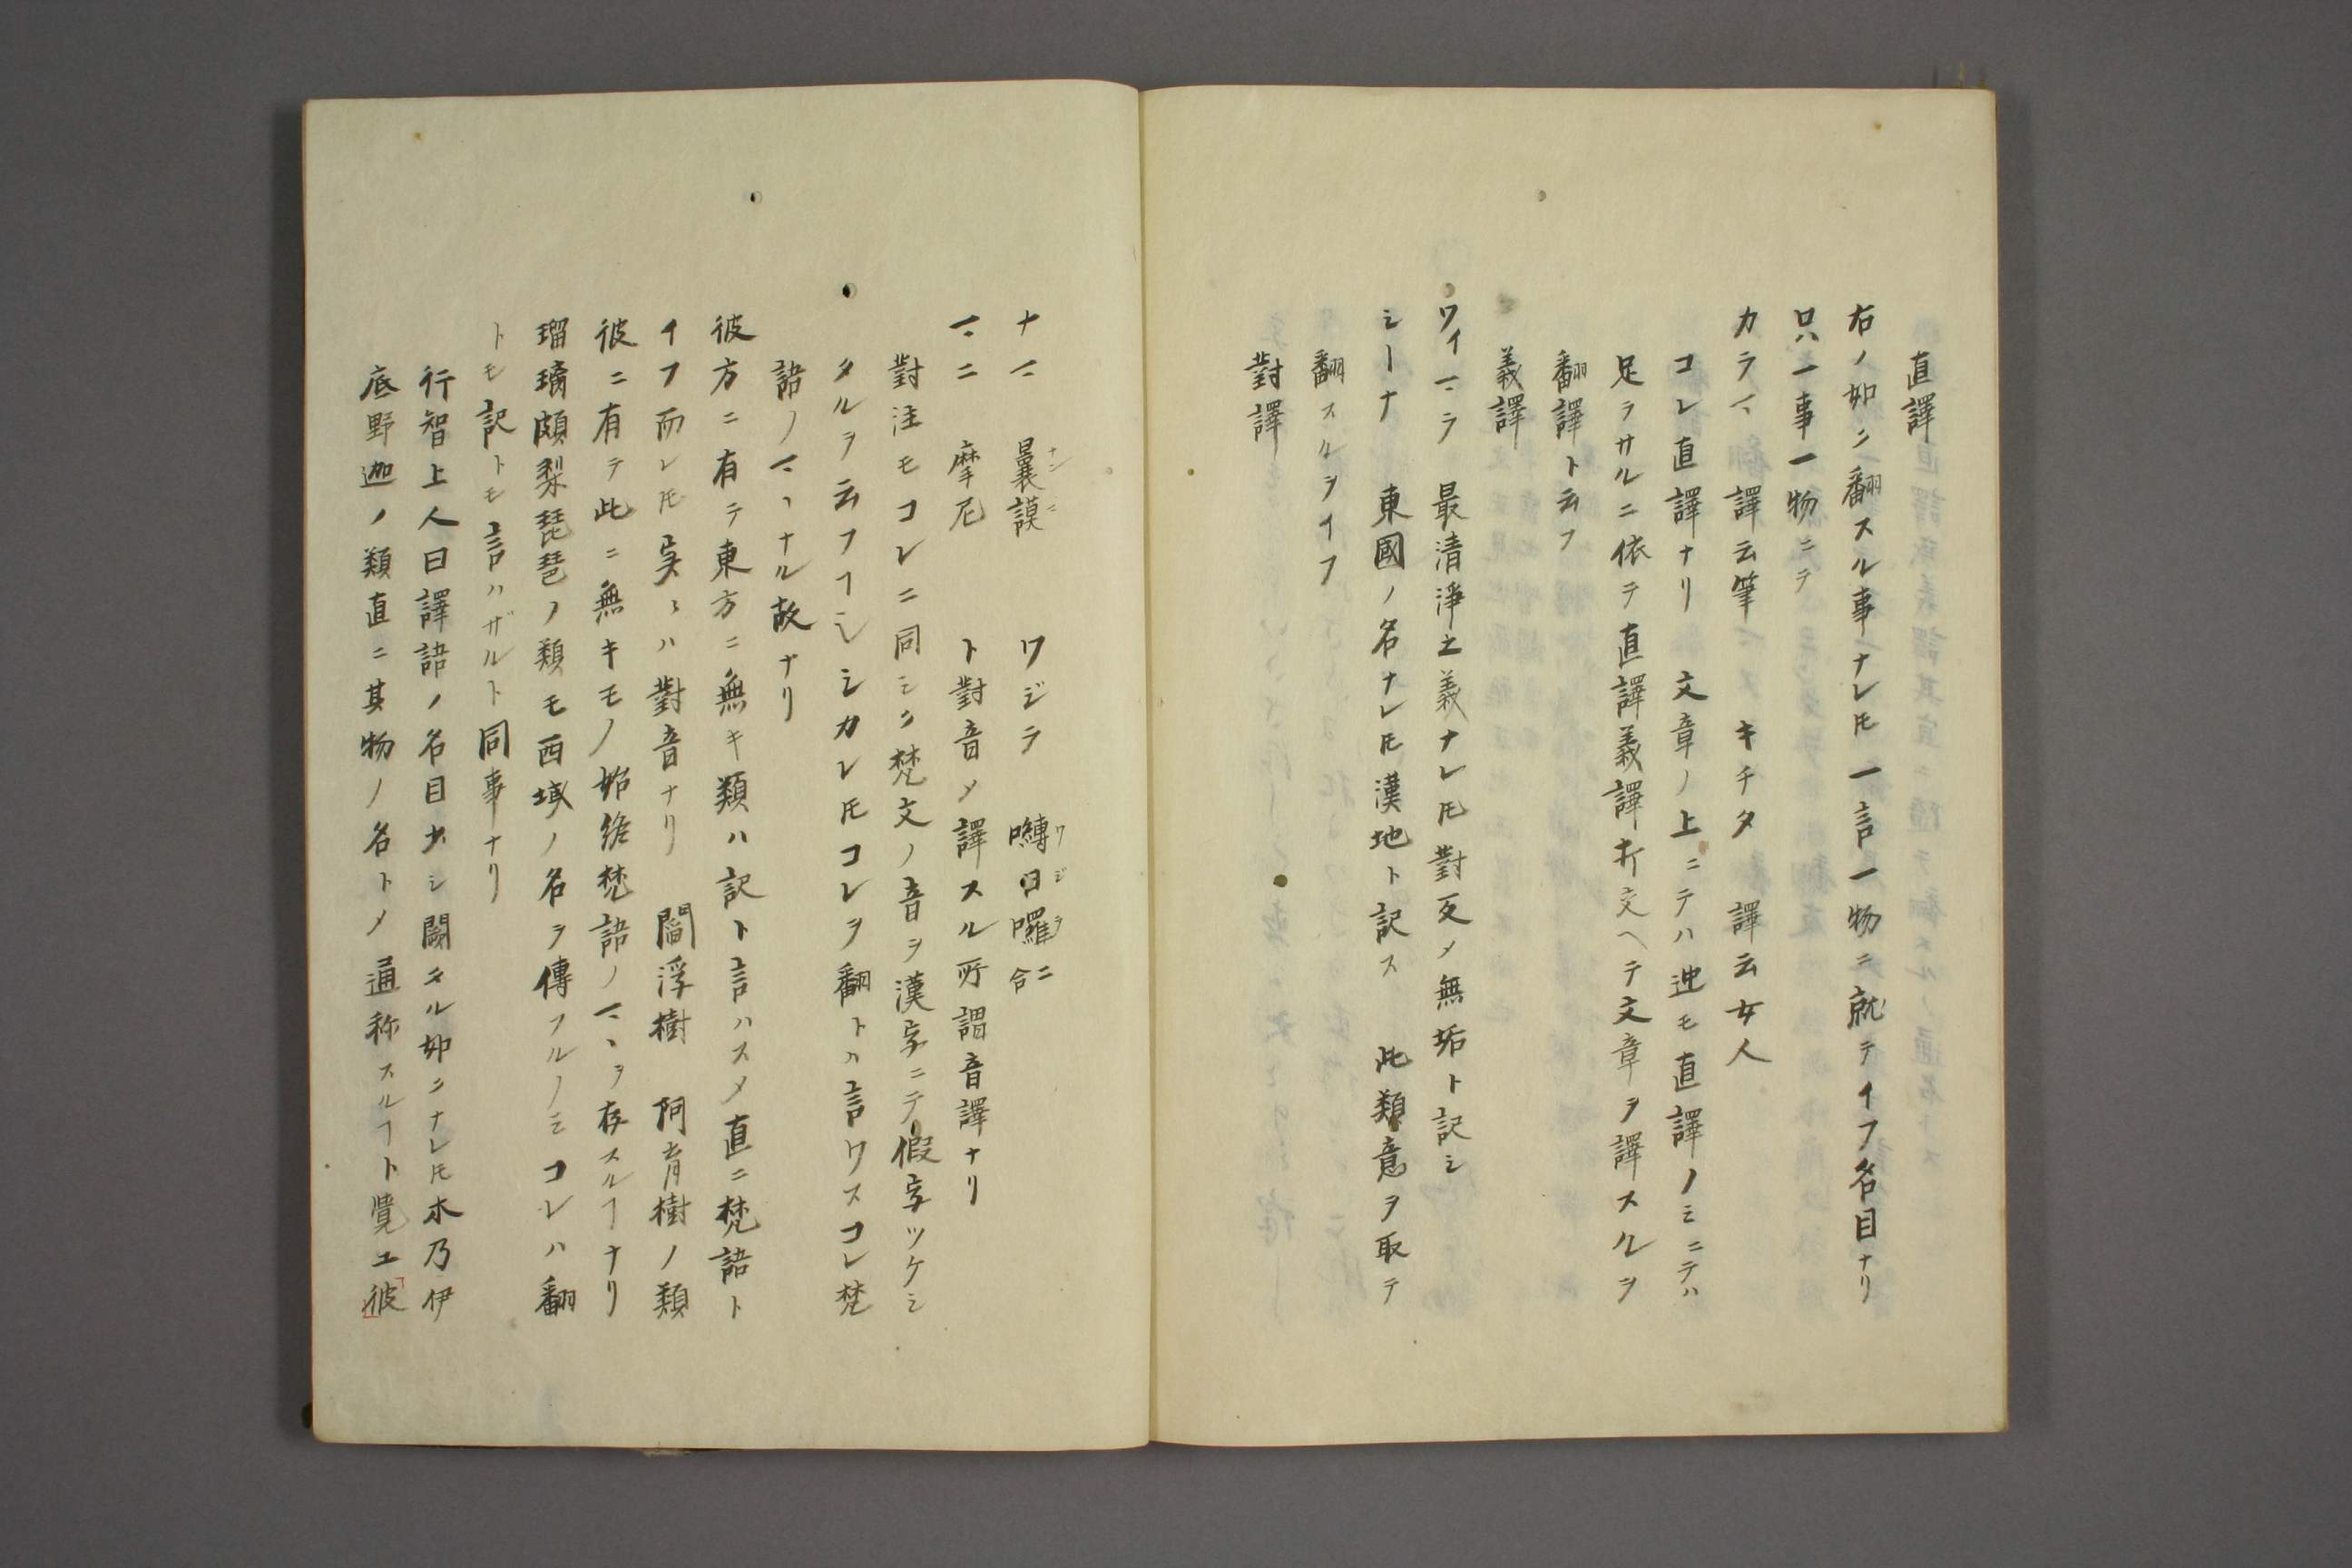 直譯
右ノ如ク翻スル事ナレ𪜈一言一物ニ就テイフ名目ナリ
只一事一物ニテ
カラマ 譯云筆 キチタ 譯云女人
コレ直譯ナリ 文章ノ上ニテハ迚モ直譯ノミニテハ
足ラサルニ依テ直譯義譯打交ヘテ文章ヲ譯スルヲ
翻譯ト云フ
義譯
ワイマラ 最清淨之義ナレ𪜈對反〆無垢ト記シ
シーナ 東國ノ名ナレ𪜈漢地ト記ス 此類意ヲ取テ
翻スルヲイフ
對譯
ナマ 曩謨 ワジラ 嚩日囉二合
マニ 摩尼 ト對音〆譯スル所謂音譯ナリ
對注モコレニ同シク梵文ノ音ヲ漢字ニテ假字ツケシ
タルヲ云フヿシシカレ𪜈コレヲ翻トハ言ワスコレ梵
語ノマヽナル故ナリ
彼方ニ有テ東方ニ無キ類ハ訳ト言ハス〆直ニ梵語ト
イフ而レ𪜈実ヽハ對音ナリ 閻浮樹 阿育樹ノ類
彼ニ有テ此ニ無キモノ始終梵語ノマヽヲ存スルヿナリ
瑠璃頗梨琵琶ノ類モ西域ノ名ヲ傳フルノミコレハ翻
トモ訳トモ言ハザルト同事ナリ
行智上人曰譯語ノ名目少シ闘タル如クナレ𪜈木乃伊
底野迦ノ類直ニ其物ノ名ト〆通称スルヿト覺ユ彼